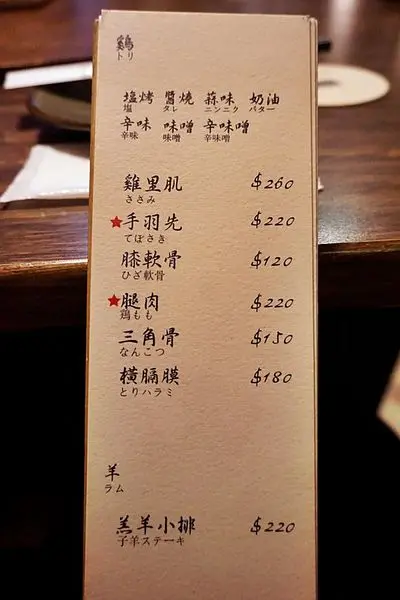 鷄
トリ
塩烤 醬燒 蒜味 奶油
塩 タレ ニンニク バター
辛味 味噌 辛味噌
辛味 味噌 辛味噌
雞里肌 $260
ささみ
★手羽先 $220
てばさき
膝軟骨 $120
ひざ軟骨
★腿肉 $220
鶏もも
三角骨 $150
なんこつ
橫膈膜 $180
とりハラミ
羊
ラム
羔羊小排 $220
子羊ステーキ